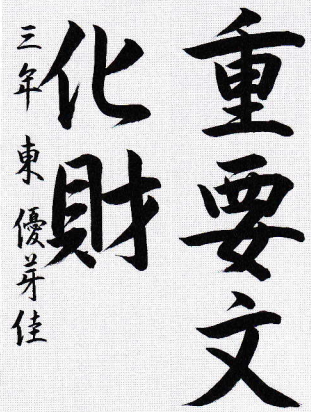 重要文
化財
三年 東 優芽佳